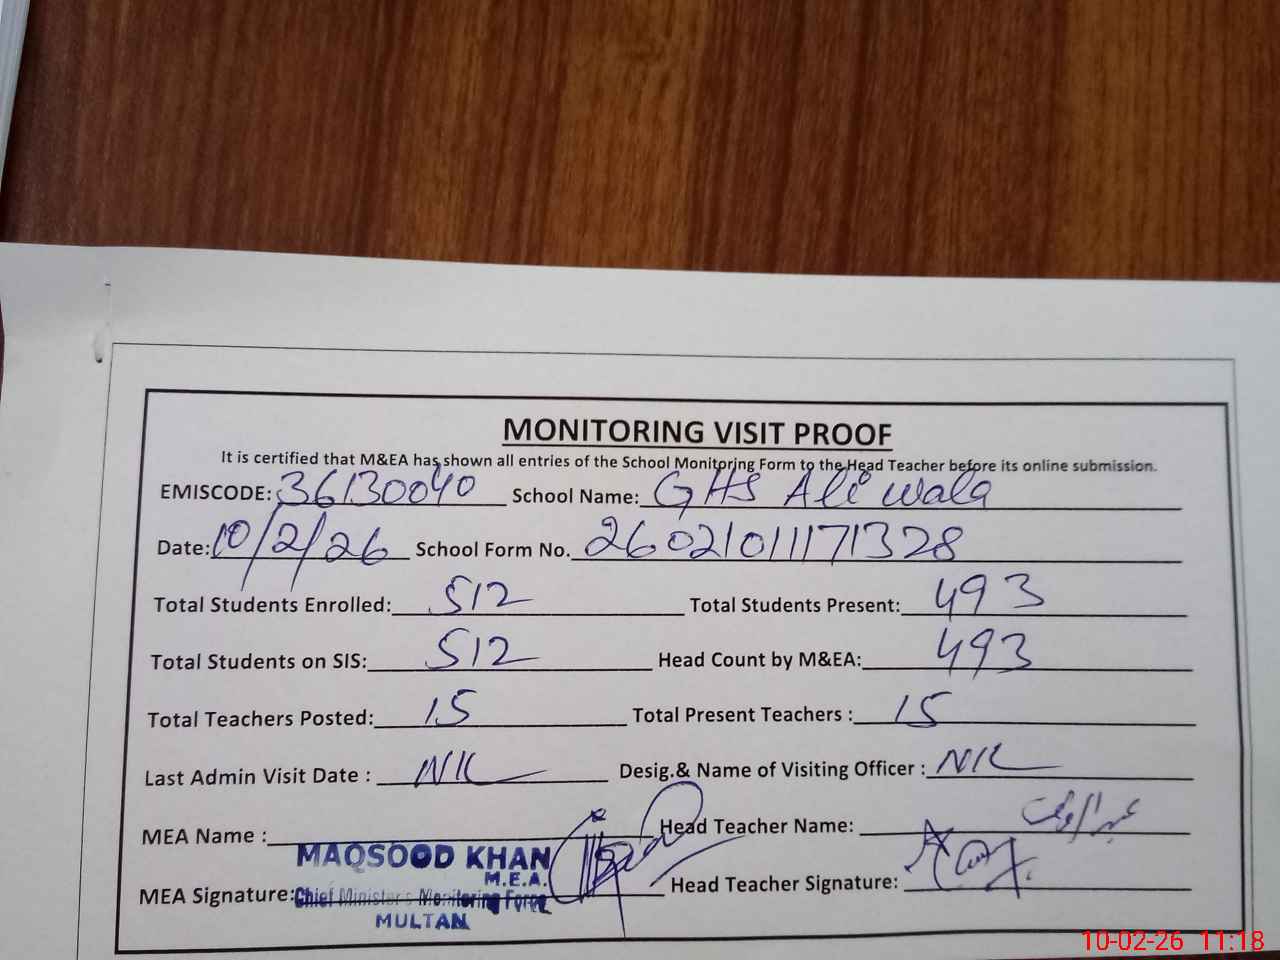 MONITORING VISIT PROOF
It is certified that M&EA has shown all entries of the School Monitoring Form to the Head Teacher before its online submission.
EMISCODE: 36130040 School Name: GHS Ali wala
Date: 10/2/26 School Form No. 26021011171328
Total Students Enrolled: 512 Total Students Present: 493
Total Students on SIS: 512 Head Count by M&EA: 493
Total Teachers Posted: 15 Total Present Teachers : 15
Last Admin Visit Date : NIL Desig.& Name of Visiting Officer : NIL
MEA Name : Head Teacher Name:
MAQSOOD KHAN
M.E.A.
MEA Signature: Chief Minister's Monitoring Force Head Teacher Signature:
MULTAN
10-02-26 11:18